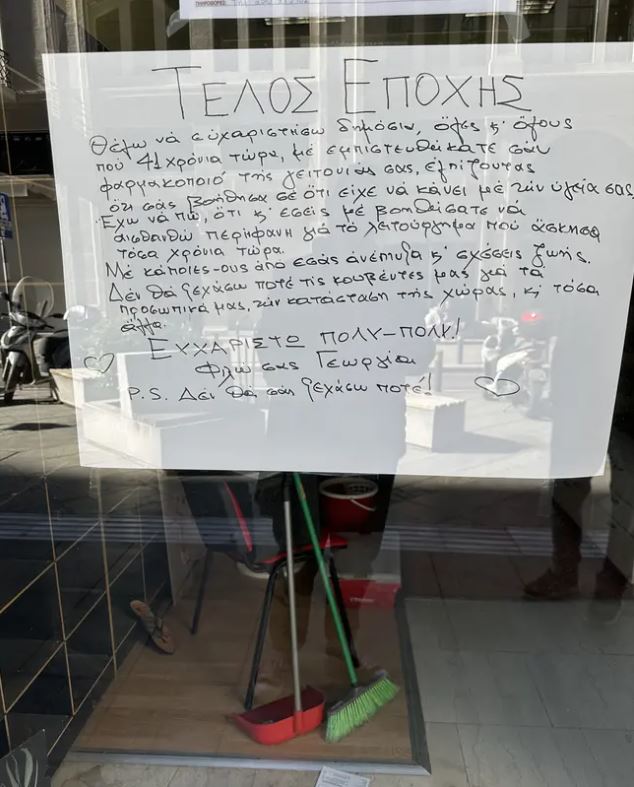 ΠΛΗΡΟΦΟΡΙΕΣ
ΤΕΛΟΣ ΕΠΟΧΗΣ
Θέλω νά εὐχαριστήσω δημόσια, ὅλες κ' ὅλους
πού 41 χρόνια τώρα, μέ ἐμπιστευθήκατε σάν
φαρμακοποιό τῆς γειτονιάς σας, ἐλπίζοντας
ὅτι σᾶς βοήθησα σέ ὅτι εἶχε νά κάνει μέ τήν ὑγεία σας.
Ἔχω νά πῶ, ὅτι κ' ἐσεῖς μέ βοηθήσατε νά
αἰσθανθῶ περήφανη γιά τό λειτούργημα πού ἄσκησα
τόσα χρόνια τώρα.
Μέ κάποιες-ους ἀπό ἐσάς ἀνέπτυξα κ' σχέσεις ζωῆς.
Δέν θά ξεχάσω ποτέ τίς κουβέντες μας γιά τά
προσωπικά μας, τήν κατάσταση τῆς χώρας, κ' τόσα
ἄλλα.
ΕΥΧΑΡΙΣΤΩ ΠΟΛΥ-ΠΟΛΥ!
Φιλιά σας Γεωργία
P.S. Δέν θά σᾶς ξεχάσω ποτέ!